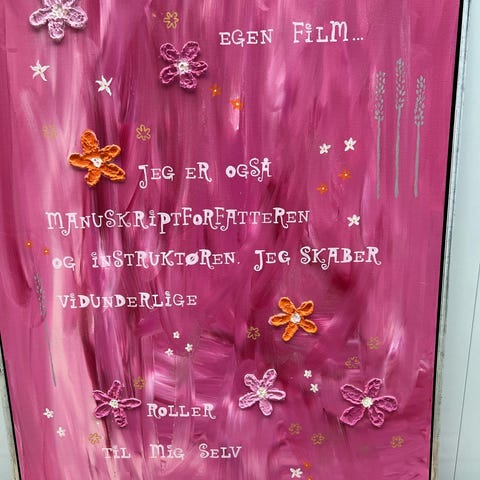 EGEN FILM...
JEG ER OGSÅ
MANUSKRIPTFORFATTEREN
OG INSTRUKTØREN. JEG SKABER
VIDUNDERLIGE
ROLLER
TIL MIG SELV